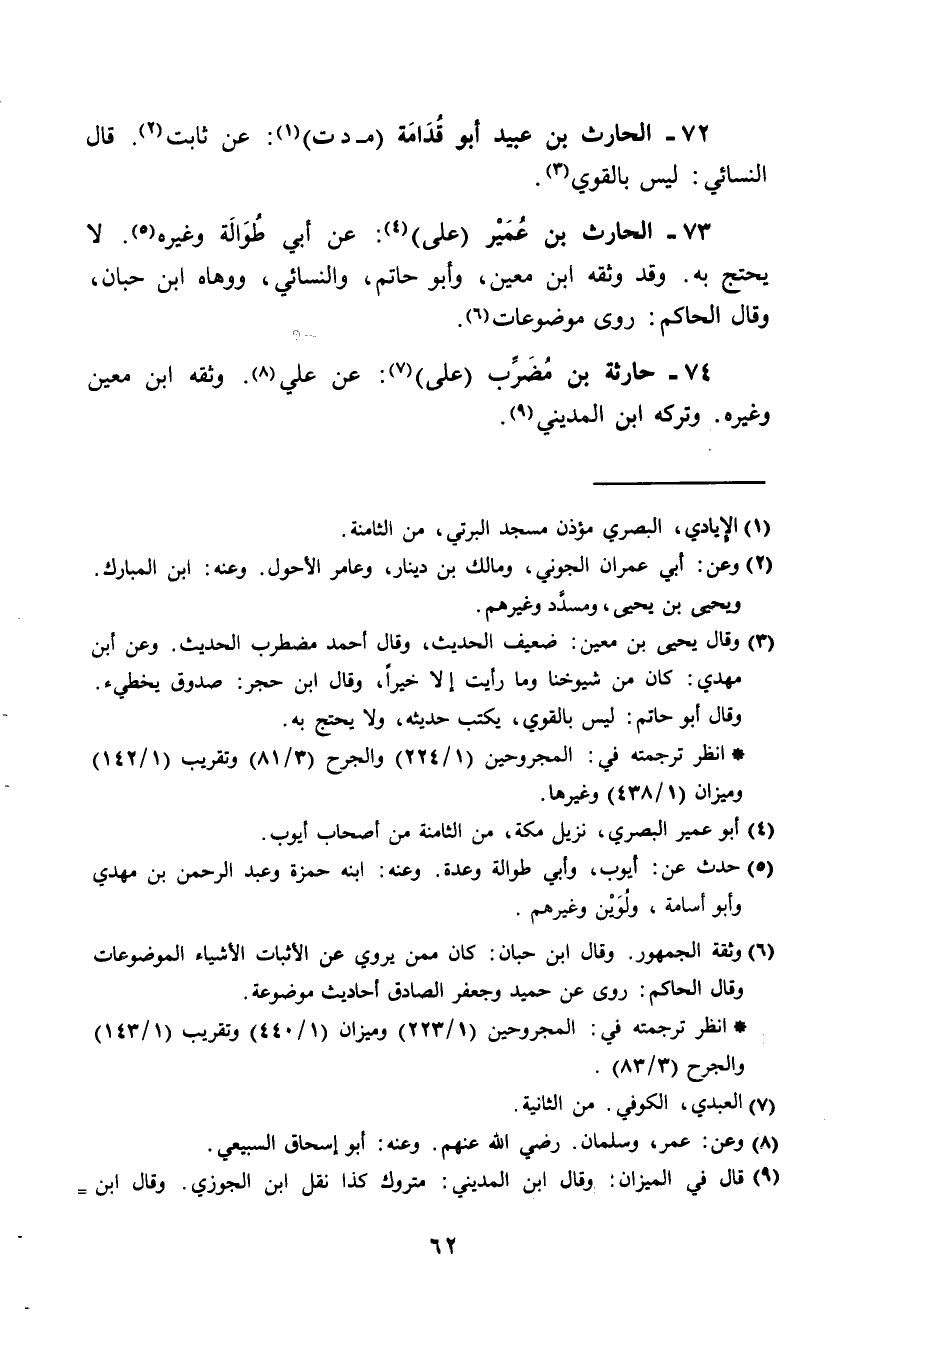 ٧٢ ـ الحارث بن عبيد أبو قُدَامَة (مـ د ت)(١): عن ثابت(٢). قال
النسائي: ليس بالقوي(٣).
٧٣ ـ الحارث بن عُمَيْر (على)(٤): عن أبي طُوَالَة وغيره(٥). لا
يحتج به. وقد وثقه ابن معين، وأبو حاتم، والنسائي، ووهاه ابن حبان،
وقال الحاكم: روى موضوعات(٦).
٧٤ ـ حارثة بن مُضَرِّب (على)(٧): عن علي(٨). وثقه ابن معين
وغيره. وتركه ابن المديني(٩).
(١) الإيادي، البصري مؤذن مسجد البرتي، من الثامنة.
(٢) وعن: أبي عمران الجوني، ومالك بن دينار، وعامر الأحول. وعنه: ابن المبارك.
ويحيى بن يحيى، ومسدَّد وغيرهم.
(٣) وقال يحيى بن معين: ضعيف الحديث، وقال أحمد مضطرب الحديث. وعن أبن
مهدي: كان من شيوخنا وما رأيت إلا خيراً، وقال ابن حجر: صدوق يخطيء.
وقال أبو حاتم: ليس بالقوي، يكتب حديثه، ولا يحتج به.
* انظر ترجمته في: المجروحين (٢٢٤/١) والجرح (٨١/٣) وتقريب (١٤٢/١)
وميزان (٤٣٨/١) وغيرها.
(٤) أبو عمير البصري، نزيل مكة، من الثامنة من أصحاب أيوب.
(٥) حدث عن: أيوب، وأبي طوالة وعدة. وعنه: ابنه حمزة وعبد الرحمن بن مهدي
وأبو أسامة ، ولُوَيْن وغيرهم .
(٦) وثقة الجمهور. وقال ابن حبان: كان ممن يروي عن الأثبات الأشياء الموضوعات
وقال الحاكم: روى عن حميد وجعفر الصادق أحاديث موضوعة.
* انظر ترجمته في: المجروحين (٢٢٣/١) وميزان (٤٤٠/١) وتقريب (١٤٣/١)
والجرح (٨٣/٣) .
(٧) العبدي، الكوفي. من الثانية.
(٨) وعن: عمر، وسلمان. رضي الله عنهم. وعنه: أبو إسحاق السبيعي.
(٩) قال في الميزان: وقال ابن المديني: متروك كذا نقل ابن الجوزي. وقال ابن =
٦٢